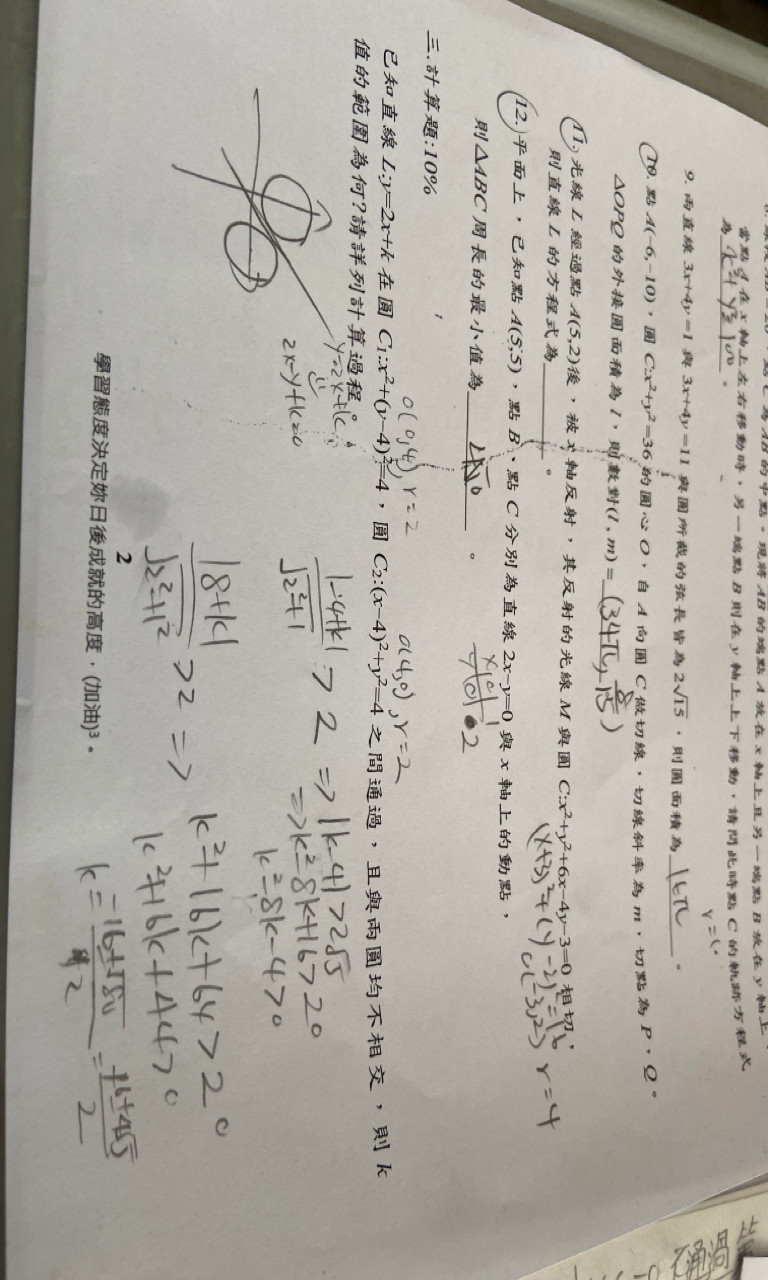 當點A在x軸上左右移動時,另一端點B則在y軸上上下移動,請問此時點C的軌跡方程式
為 x²+y²=100 。
9. 兩直線 3x+4y=1 與 3x+4y=11 與圓所截的弦長皆為 2√15,則圓面積為 16π 。
r=4
10. 點A(-6,-10),圓 C:x²+y²=36 的圓心 O,自 A 向圓 C 做切線,切線斜率為 m,切點為 P、Q。
ΔOPQ 的外接圓面積為 l,則數對(l,m)= (34π, 8/15)
11. 光線 L 經過點 A(5,2)後,被 x 軸反射,其反射的光線 M 與圓 C:x²+y²+6x-4y-3=0 相切,
則直線 L 的方程式為 。
(x+3)²+(y-2)²=16
O(-3,2) r=4
12. 平面上,已知點 A(5,5),點 B、點 C 分別為直線 2x-y=0 與 x 軸上的動點,
x|0|1
y|0|2
則ΔABC 周長的最小值為 。
三.計算題:10%
O(0,4), r=2
O(4,0), r=2
已知直線 L:y=2x+k 在圓 C₁:x²+(y-4)²=4,圓 C₂:(x-4)²+y²=4 之間通過,且與兩圓均不相交,則 k
值的範圍為何?請詳列計算過程。
y=2x+k
2x-y+k=0
|-4+k|/√2²+1 > 2 => |k-4|>2√5
=> k²-8k+16>20
k²-8k-4>0
|8+k|/√2²+1² >2 => k²+16k+64>20
k²+16k+44>0
2
學習態度決定妳日後成就的高度.(加油)³。